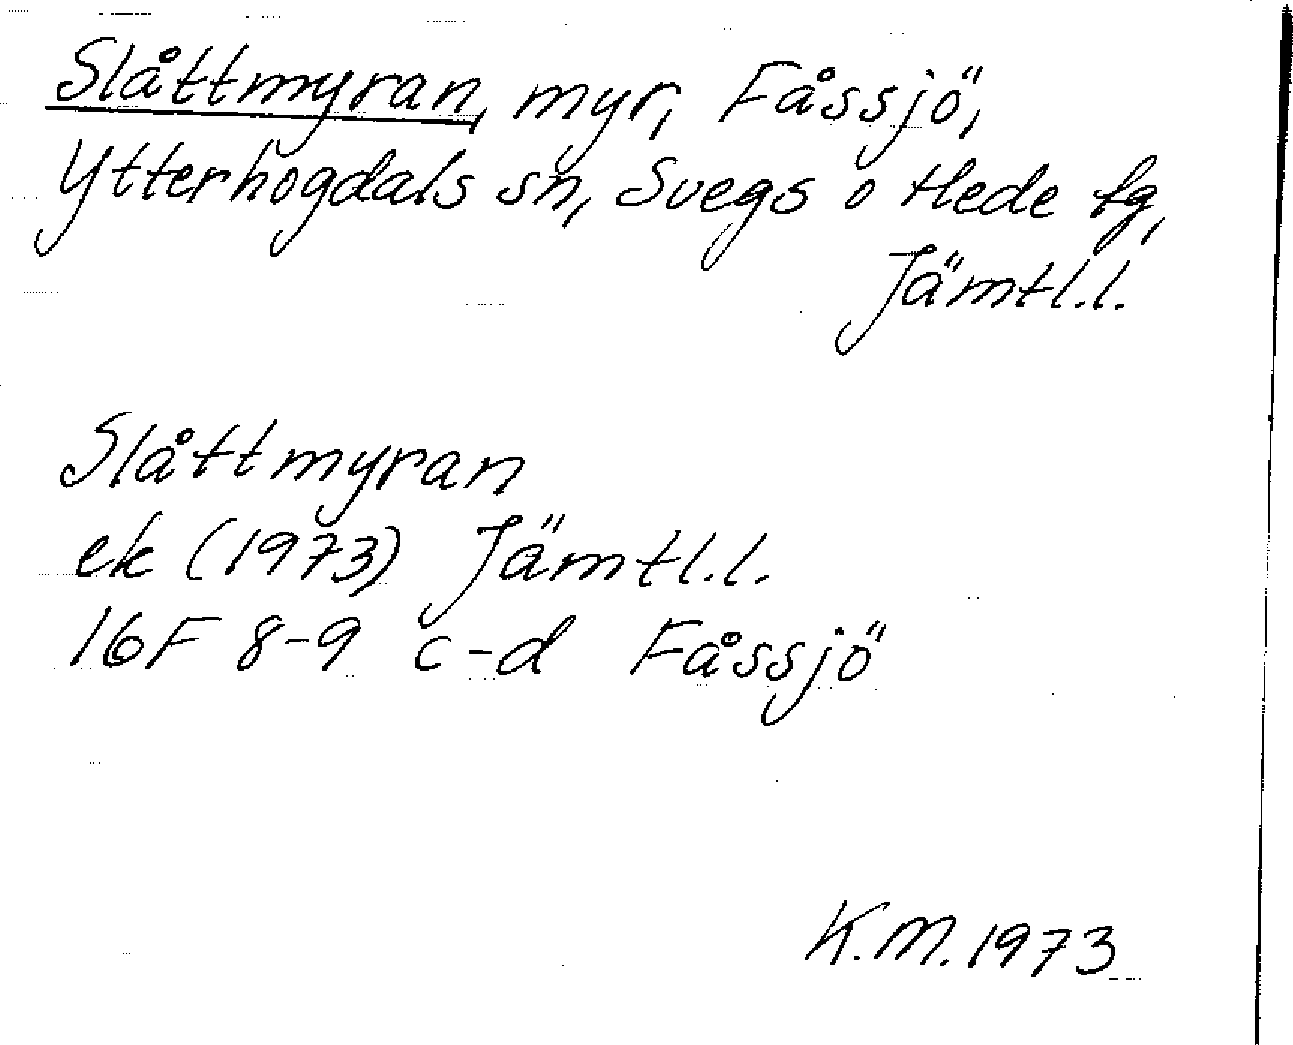 Slåttmyran, myr, Fåssjö,
Ytterhogdals sn, Svegs o Hede tg,
Jämtl.l.
Slåttmyran
ek (1973) Jämtl.l.
16F 8-9 c-d Fåssjö
K.M. 1973